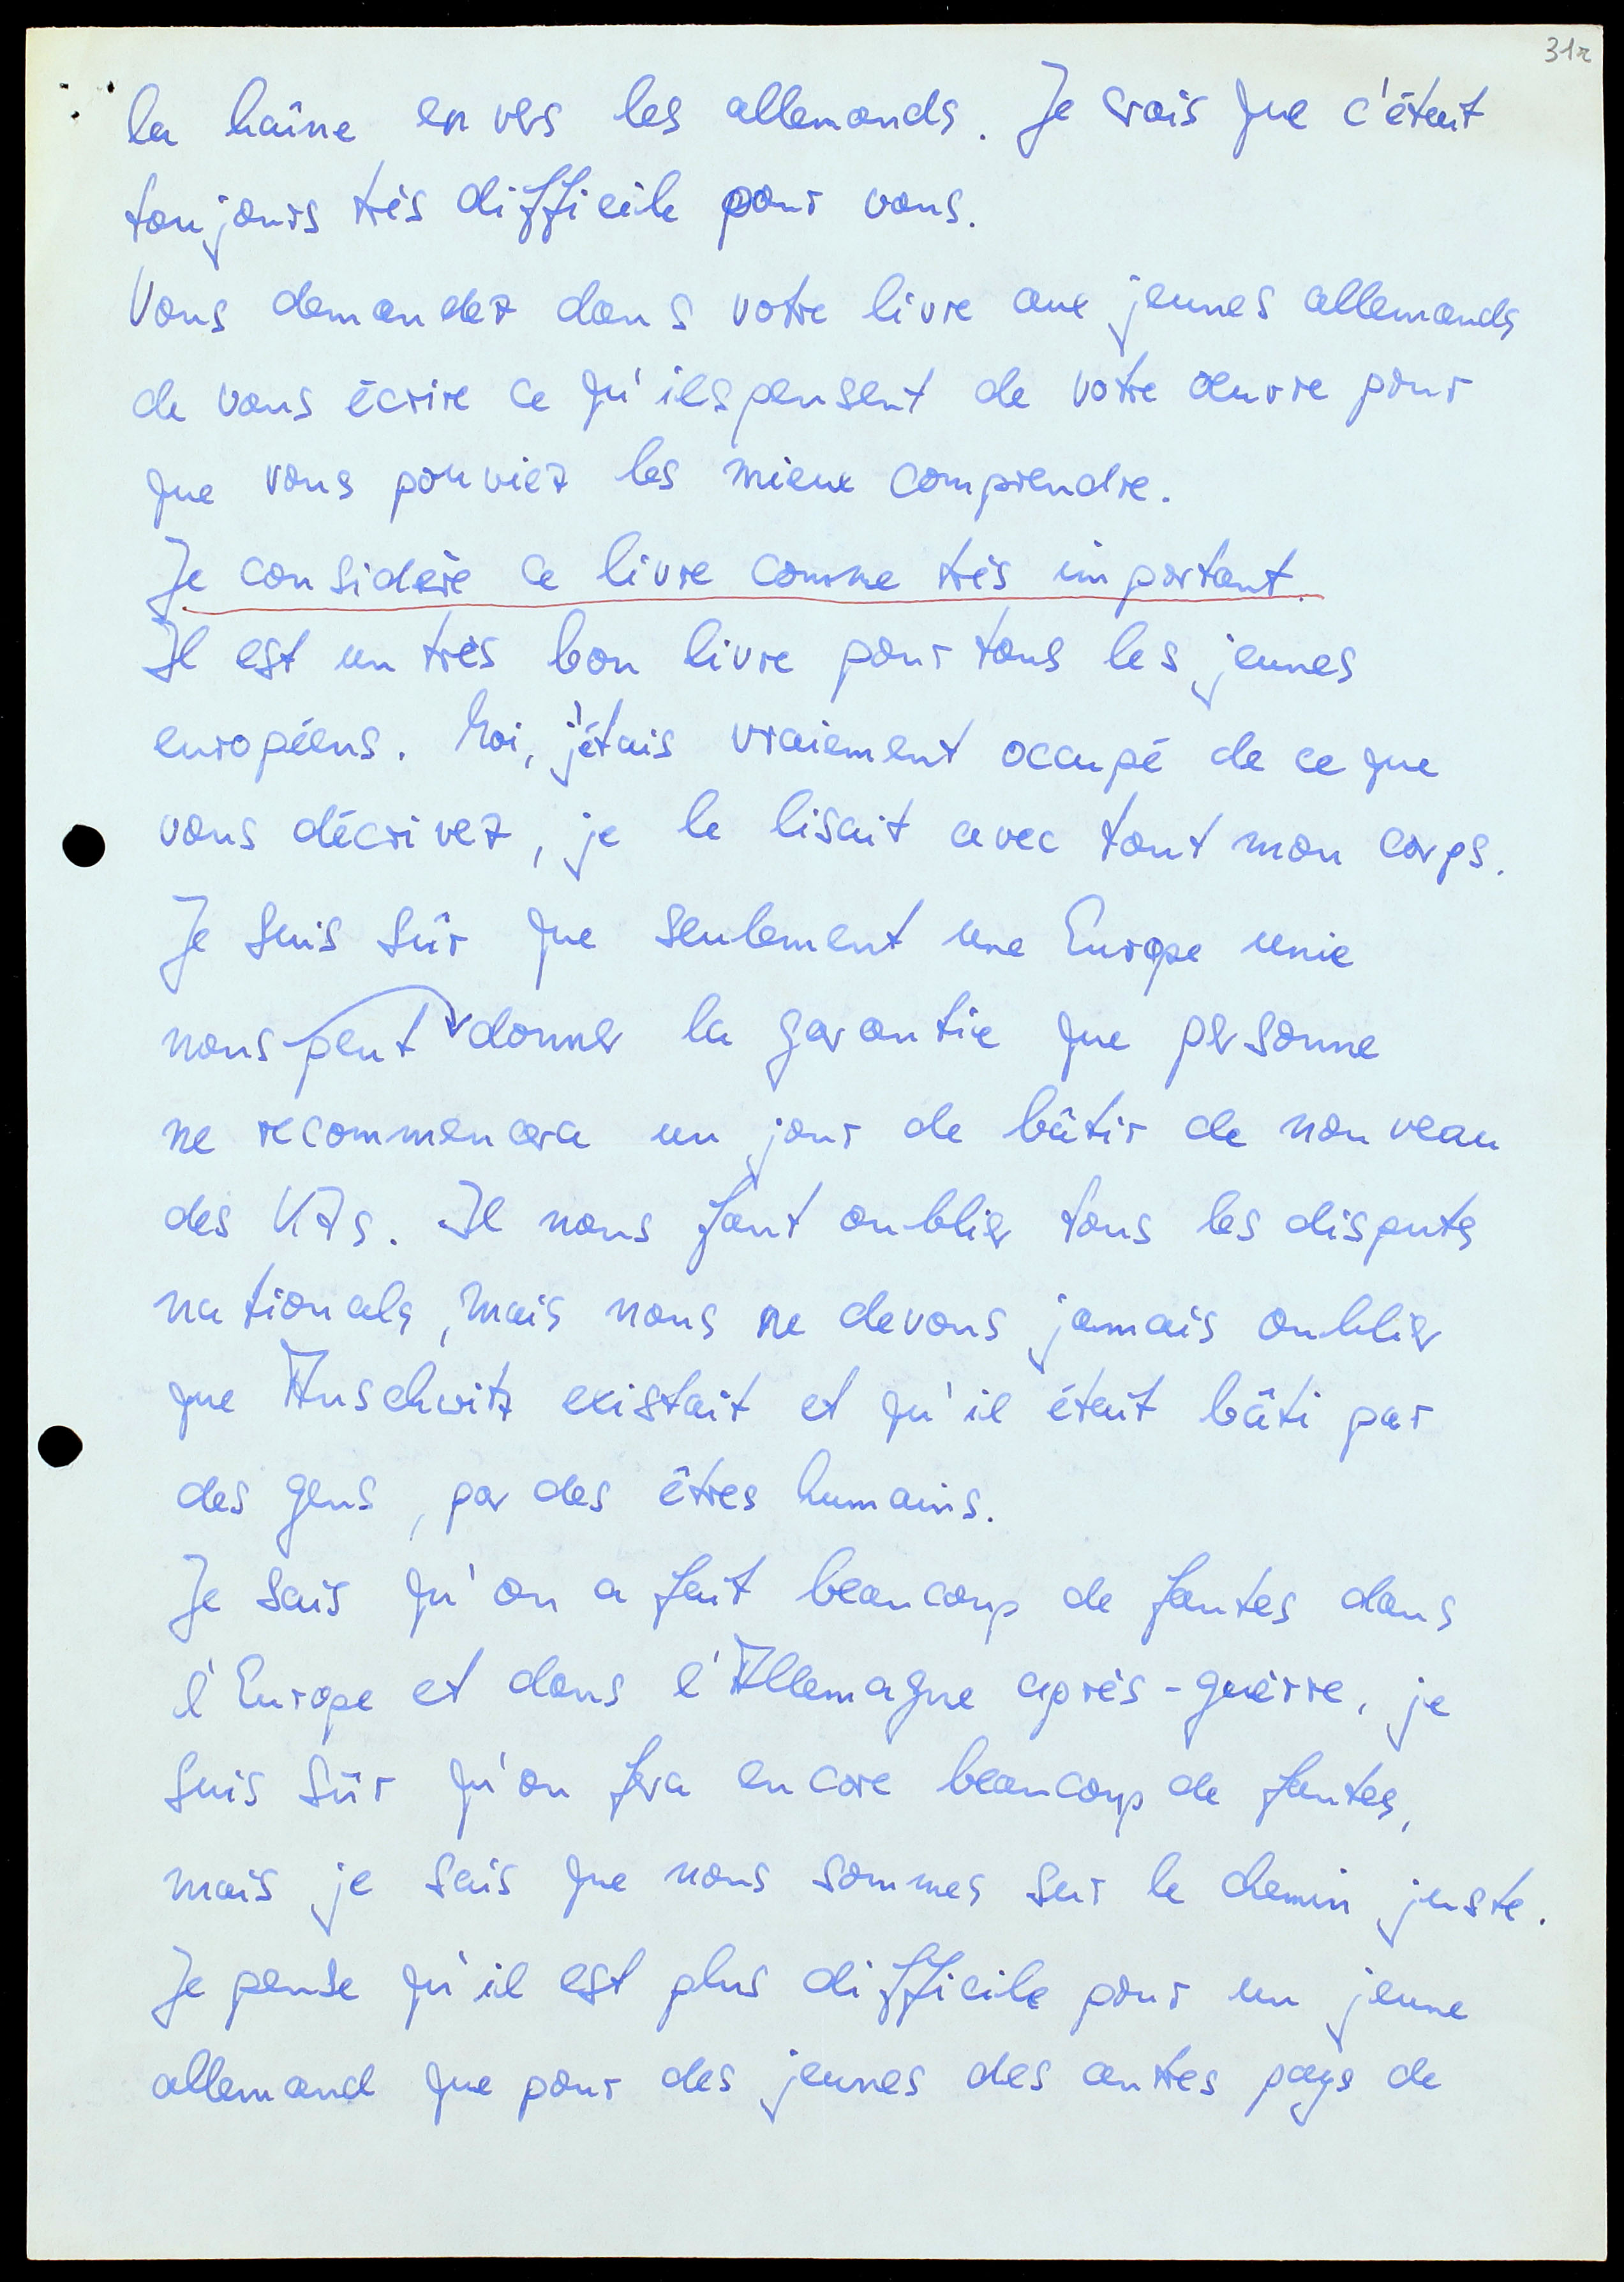 31r
la haîne envers les allemands. Je crois que c'était
toujours très difficile pour vous.
Vous demandez dans votre livre aux jeunes allemands
de vous écrire ce qu'ils pensent de votre œuvre pour
que vous pouviez les mieux comprendre.
Je considère ce livre comme très important.
Il est un très bon livre pour tous les jeunes
européens. Moi, j'étais vraiement occupé de ce que
vous décrivez, je le lisait avec tout mon corps.
Je suis sûr que seulement une Europe unie
nous peut donner la garantie que personne
ne recommencera un jour de bâtir de nouveau
des KZs. Il nous faut oublier tous les disputs
nationals, mais nous ne devons jamais oublier
que Auschwitz existait et qu'il était bâti par
des gens, par des êtres humains.
Je sais qu'on a fait beaucoup de fautes dans
l'Europe et dans l'Allemagne après-guèrre, je
suis sûr qu'on fera encore beaucoup de fautes,
mais je sais que nous sommes sur le chemin juste.
Je pense qu'il est plus difficile pour un jeune
allemand que pour des jeunes des autres pays de